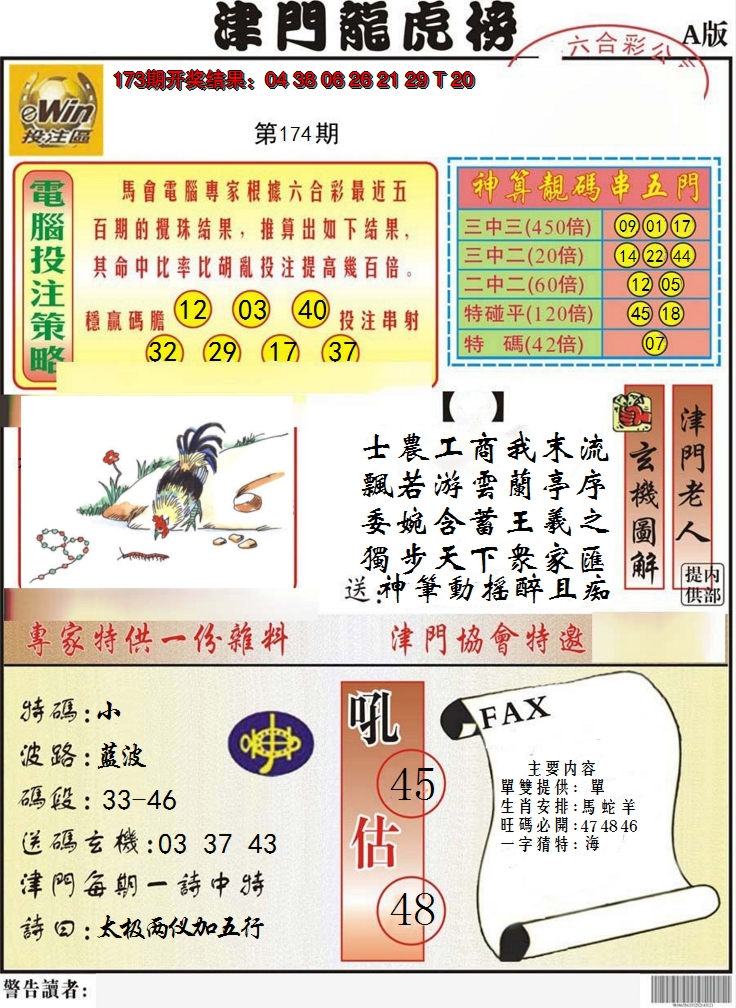 津門龍虎榜
六合彩公
A版
173期开奖结果：04 38 06 26 21 29 T 20
eWin
投注區
第174期
電腦投注策略
馬會電腦專家根據六合彩最近五
百期的攪珠结果，推算出如下结果，
其命中比率比胡亂投注提高幾百倍。
穩贏碼膽 12 03 40 投注串射
32 29 17 37
神算靚碼串五門
三中三(450倍) 09 01 17
三中二(20倍) 14 22 44
二中二(60倍) 12 05
特碰平(120倍) 45 18
特 碼(42倍) 07
【 】
士農工商我末流
飄若游雲蘭亭序
委婉含蓄王羲之
獨步天下衆家匯
送:神筆動搖醉且痴
玄機圖解
津門老人
内部提供
專家特供一份雜料
津門協會特邀
特碼:小
波路:藍波
碼段:33-46
送碼玄機:03 37 43
津門每期一詩中特
詩曰:太极两仪加五行
吼
45
估
48
FAX
主要内容
單雙提供：單
生肖安排:馬蛇羊
旺碼必開:47 48 46
一字猜特:海
警告讀者: